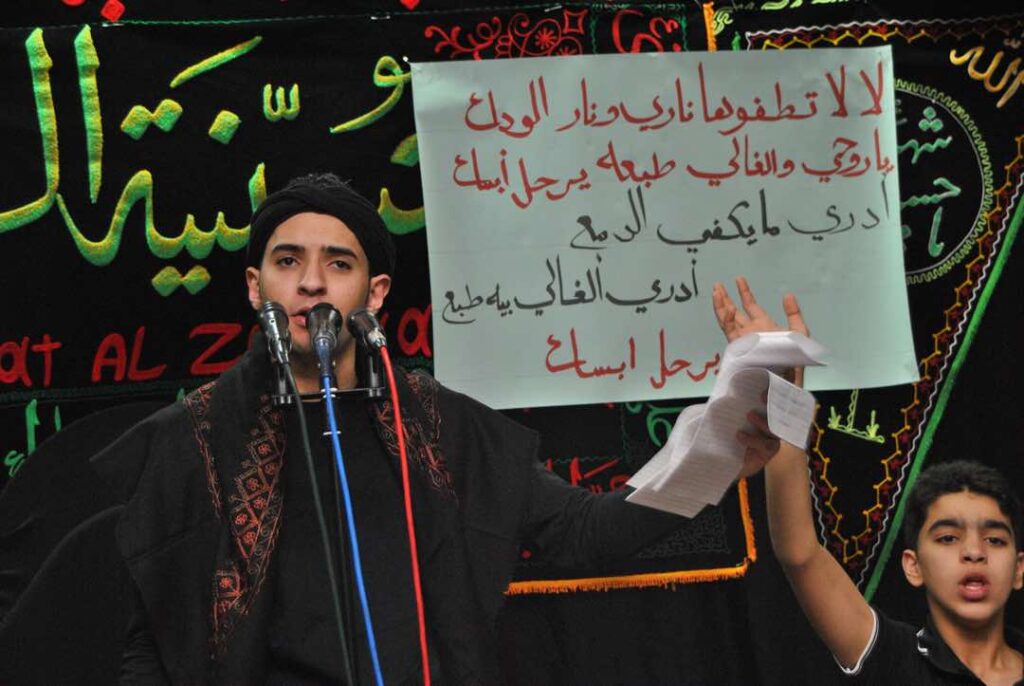 لا لا تطفوها ناري ونار الوداع
ياروحي والغالي طبعه يرحل أبساع
أدري مايكفي الدمع
أدري الغالي بيه طبع
يرحل ابساع
at AL Za
الله
شهيد
حسين
امام